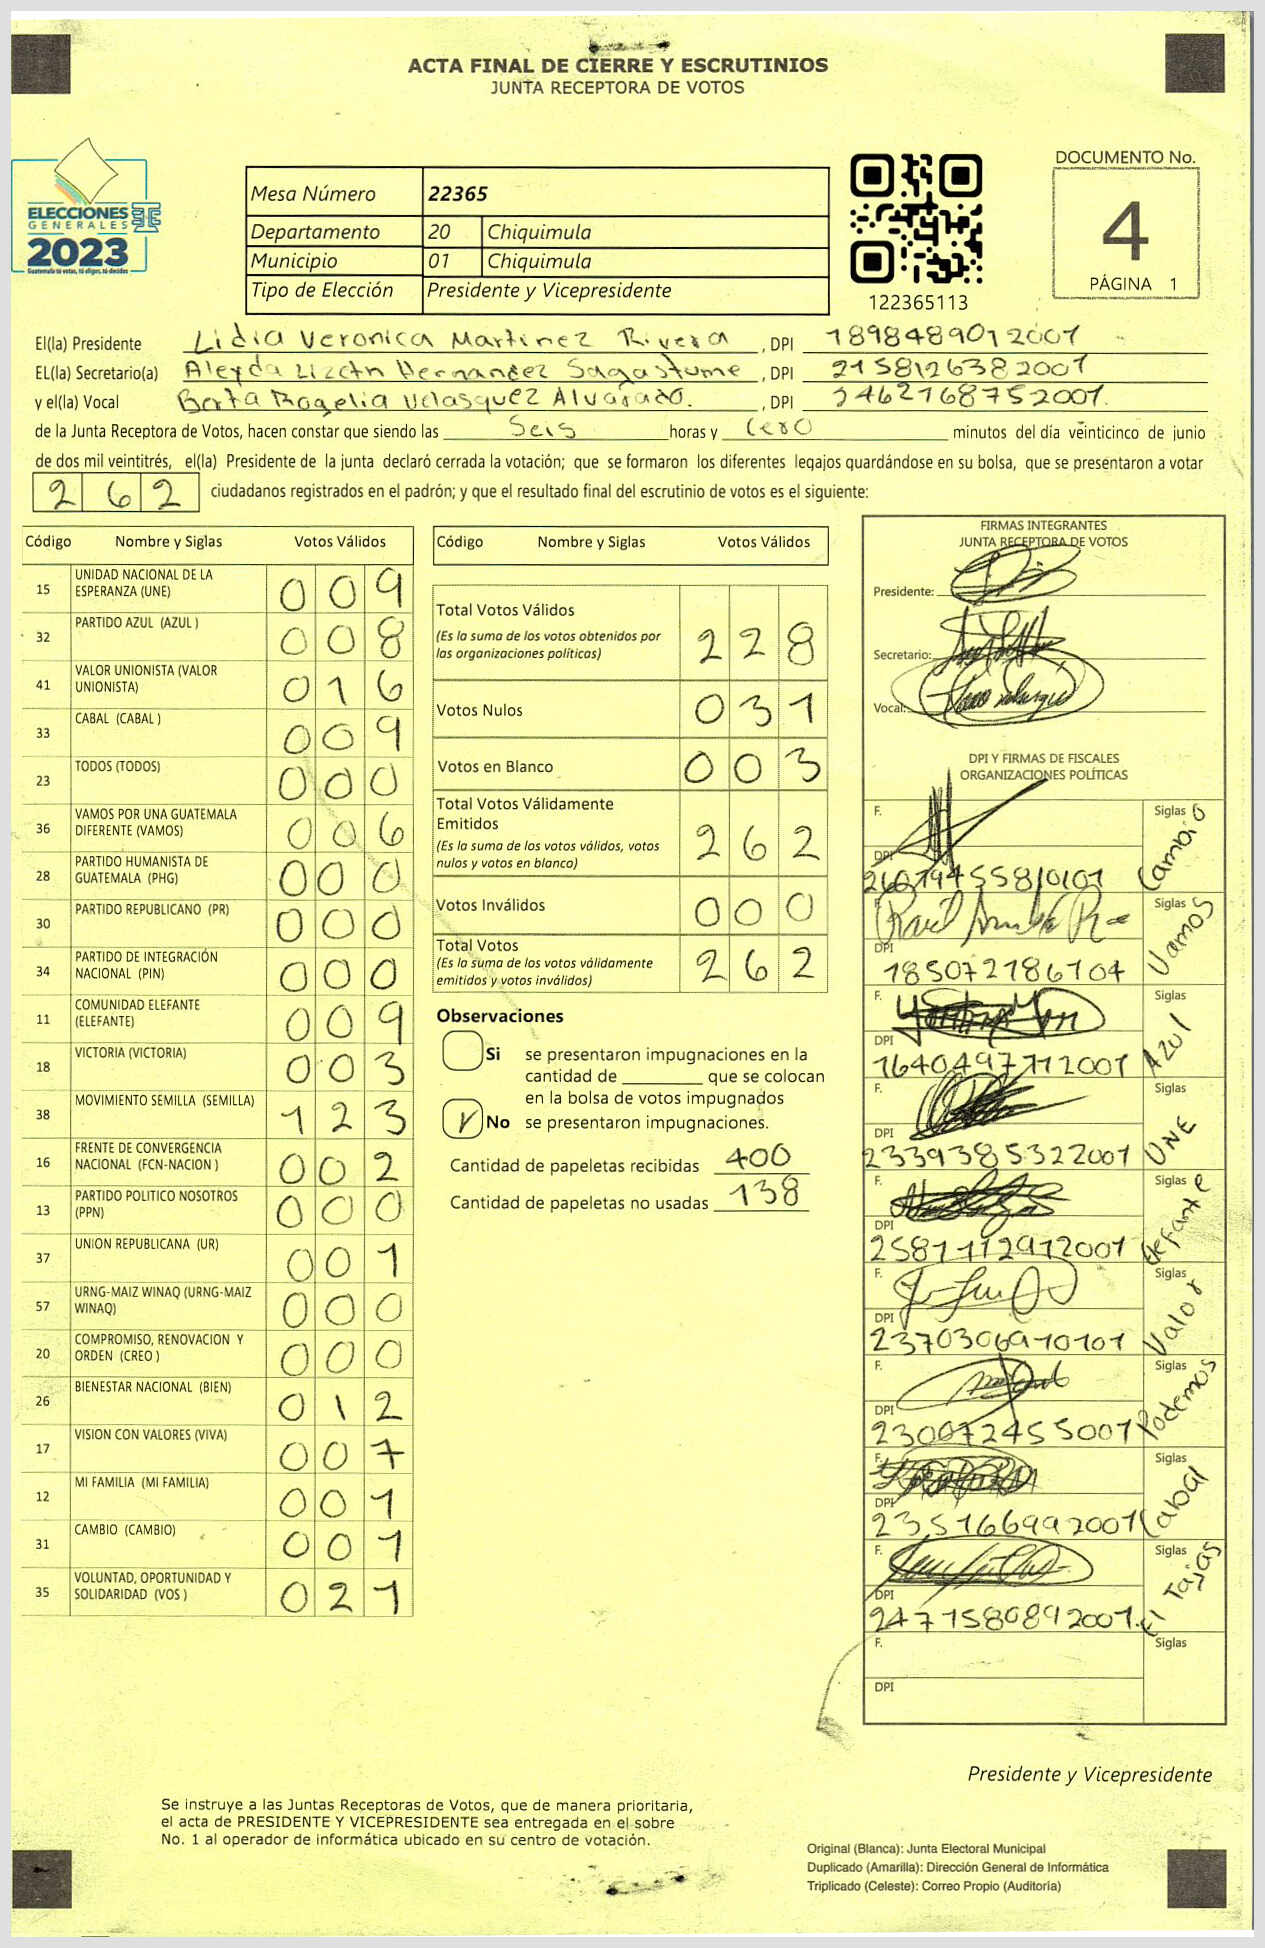 ACTA FINAL DE CIERRE Y ESCRUTINIOS
JUNTA RECEPTORA DE VOTOS
ELECCIONES
GENERALES
2023
Guatemala tú votas, tú eliges, tú decides
Mesa Número 22365
Departamento 20 Chiquimula
Municipio 01 Chiquimula
Tipo de Elección Presidente y Vicepresidente
122365113
DOCUMENTO No.
4
PÁGINA 1
El(la) Presidente Lidia Veronica Martinez Rivera, DPI 1898489012001
EL(la) Secretario(a) Aleyda Lizeth Hernandez Sagastume, DPI 2158126382001
y el(la) Vocal Berta Rogelia Velasquez Alvarado., DPI 2462768752001.
de la Junta Receptora de Votos, hacen constar que siendo las Seis horas y cero minutos del día veinticinco de junio
de dos mil veintitrés, el(la) Presidente de la junta declaró cerrada la votación; que se formaron los diferentes legajos guardándose en su bolsa, que se presentaron a votar
262 ciudadanos registrados en el padrón; y que el resultado final del escrutinio de votos es el siguiente:
Código Nombre y Siglas Votos Válidos
15 UNIDAD NACIONAL DE LA ESPERANZA (UNE) 009
32 PARTIDO AZUL (AZUL ) 008
41 VALOR UNIONISTA (VALOR UNIONISTA) 016
33 CABAL (CABAL ) 009
23 TODOS (TODOS) 000
36 VAMOS POR UNA GUATEMALA DIFERENTE (VAMOS) 006
28 PARTIDO HUMANISTA DE GUATEMALA (PHG) 000
30 PARTIDO REPUBLICANO (PR) 000
34 PARTIDO DE INTEGRACIÓN NACIONAL (PIN) 000
11 COMUNIDAD ELEFANTE (ELEFANTE) 009
18 VICTORIA (VICTORIA) 003
38 MOVIMIENTO SEMILLA (SEMILLA) 123
16 FRENTE DE CONVERGENCIA NACIONAL (FCN-NACION ) 002
13 PARTIDO POLITICO NOSOTROS (PPN) 000
37 UNION REPUBLICANA (UR) 001
57 URNG-MAIZ WINAQ (URNG-MAIZ WINAQ) 000
20 COMPROMISO, RENOVACION Y ORDEN (CREO ) 000
26 BIENESTAR NACIONAL (BIEN) 012
17 VISION CON VALORES (VIVA) 007
12 MI FAMILIA (MI FAMILIA) 001
31 CAMBIO (CAMBIO) 001
35 VOLUNTAD, OPORTUNIDAD Y SOLIDARIDAD (VOS ) 021
Código Nombre y Siglas Votos Válidos
Total Votos Válidos 228
(Es la suma de los votos obtenidos por
las organizaciones políticas)
Votos Nulos 031
Votos en Blanco 003
Total Votos Válidamente
Emitidos 262
(Es la suma de los votos válidos, votos
nulos y votos en blanco)
Votos Inválidos 000
Total Votos 262
(Es la suma de los votos válidamente
emitidos y votos inválidos)
Observaciones
Si se presentaron impugnaciones en la
cantidad de que se colocan
en la bolsa de votos impugnados
No se presentaron impugnaciones.
Cantidad de papeletas recibidas 400
Cantidad de papeletas no usadas 138
FIRMAS INTEGRANTES
JUNTA RECEPTORA DE VOTOS
Presidente:
Secretario:
Vocal:
DPI Y FIRMAS DE FISCALES
ORGANIZACIONES POLÍTICAS
F. Siglas Cambio
DPI
F. Siglas Vamos
DPI 185072786104
F. Siglas Azul
DPI 1640497712001
F. Siglas UNE
DPI 2339385322001
F. Siglas elefante
DPI 2581112912001
F. Siglas Valor
DPI 2370306910101
F. Siglas Podemos
DPI 230072455001
F. Siglas Cabal
DPI 2351766992001
F. Siglas El Tajas
DPI 2471580892001.
F. Siglas
DPI
Presidente y Vicepresidente
Se instruye a las Juntas Receptoras de Votos, que de manera prioritaria,
el acta de PRESIDENTE Y VICEPRESIDENTE sea entregada en el sobre
No. 1 al operador de informática ubicado en su centro de votación.
Original (Blanca): Junta Electoral Municipal
Duplicado (Amarilla): Dirección General de Informática
Triplicado (Celeste): Correo Propio (Auditoría)